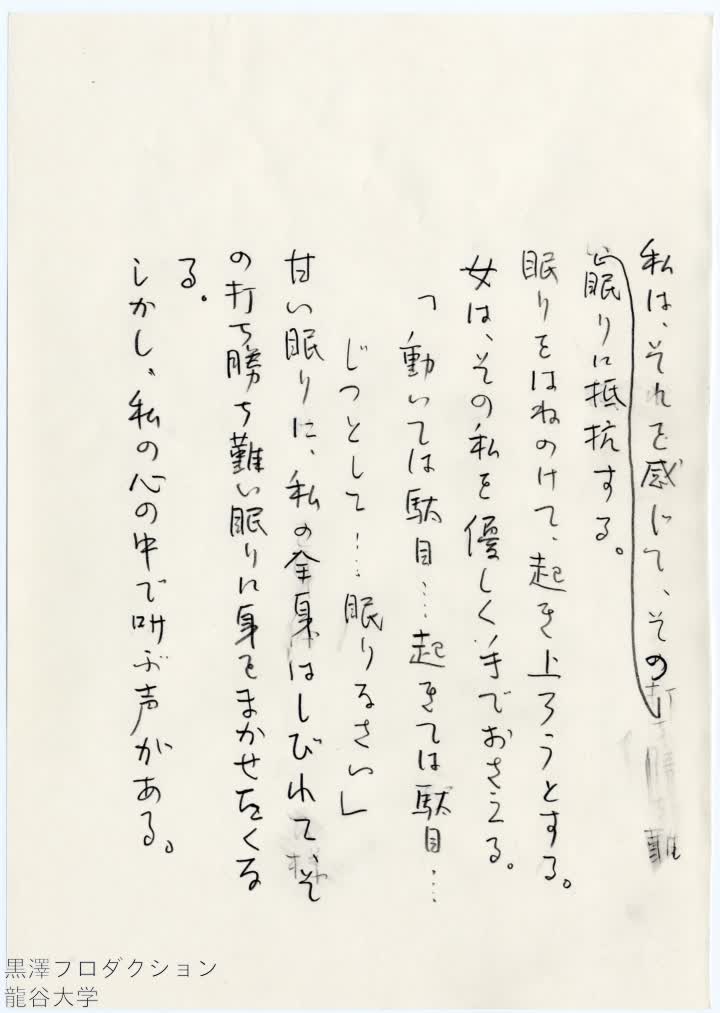 私は、それを感じて、その打ち勝ち難
い眠りに抵抗する。
眠りをはねのけて、起き上ろうとする。
女は、その私を優しく手でおさえる。
「動いては駄目……起きては駄目……
じっとして……眠りなさい」
甘い眠りに、私の全身はしびれて、そ
の打ち勝ち難い眠りに身をまかせたくな
る。
しかし、私の心の中で叫ぶ声がある。
黒澤プロダクション
龍谷大学